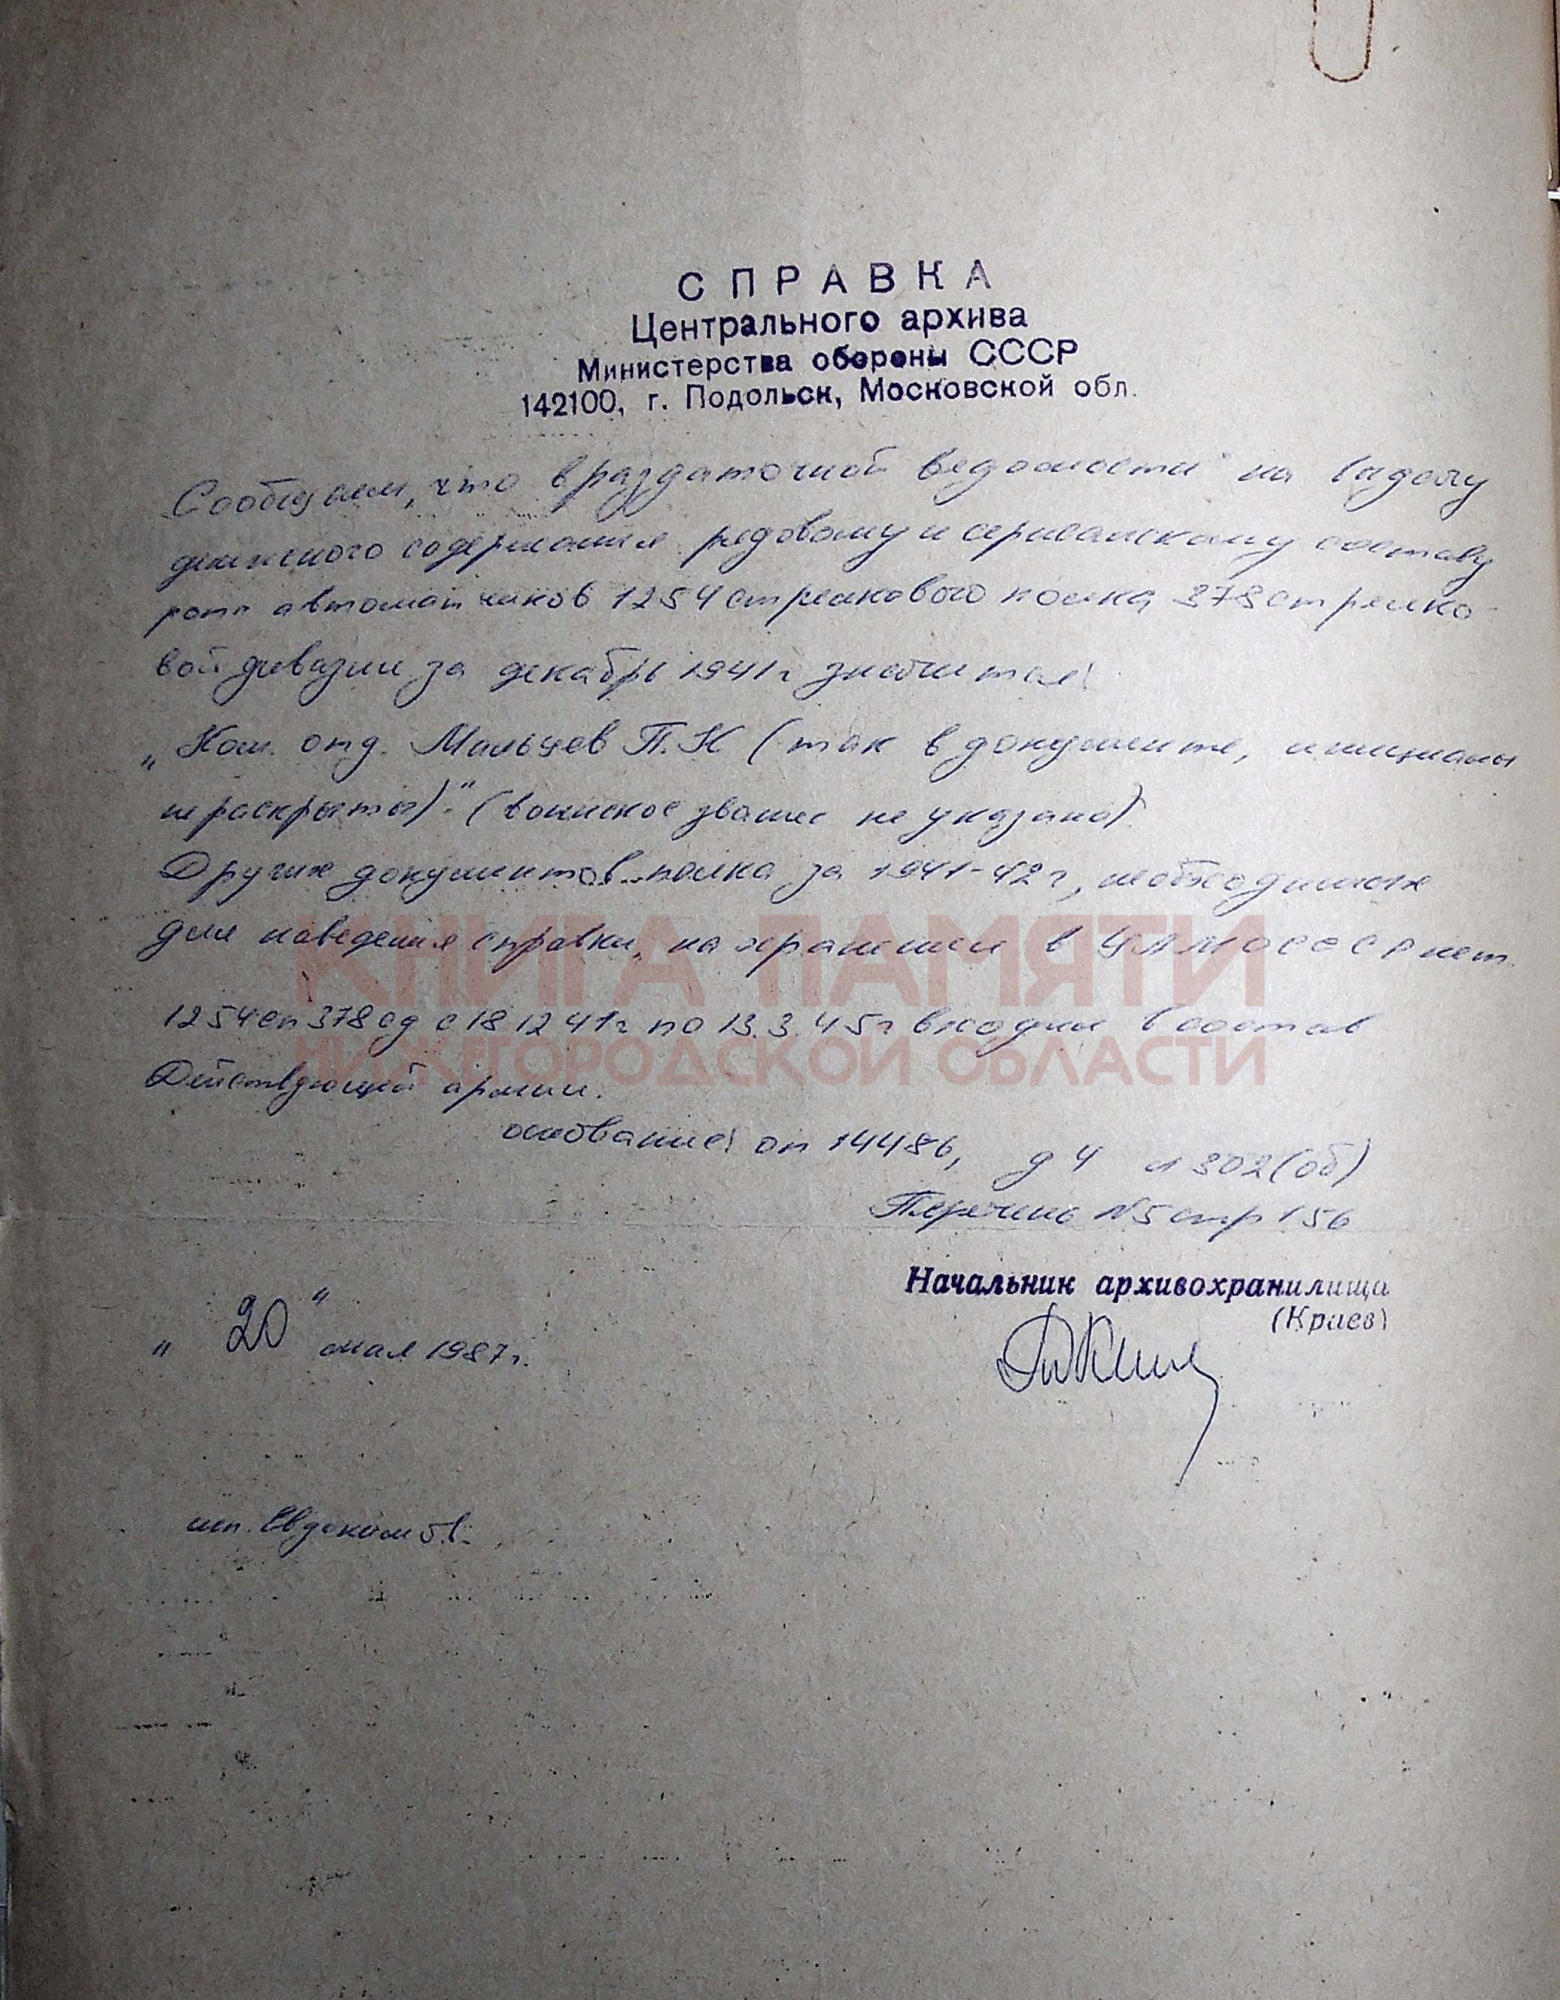 СПРАВКА
Центрального архива
Министерства обороны СССР
142100, г. Подольск, Московской обл.
Сообщаем, что в раздаточной ведомости на выдачу
денежного содержания рядовому и сержанскому составу
роты автоматчиков 1254 стрелкового полка 378 стрелко-
вой дивизии за декабрь 1941 г значится:
„Ком. отд. Мальцев П.К (так в документе, инициалы
не раскрыты)." (воинское звание не указано)
Других документов полка за 1941-42 г, необходимых
для наведения справки, на хранении в ЦАМО СССР нет.
1254 сп 378 сд с 18 12 41 г по 13.3.45 г входил в состав
Действующей армии.
основание: оп 14486, д 4 л 302 (об)
Перечень №5 стр 156
Начальник архивохранилища
(Краев)
„20" мая 1987 г.
исп. Евдоким
КНИГА ПАМЯТИ
НИЖЕГОРОДСКОЙ ОБЛАСТИ